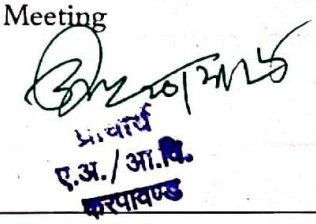 Meeting
प्राचार्य
ए.अ./आ.वि.
करपावण्ड